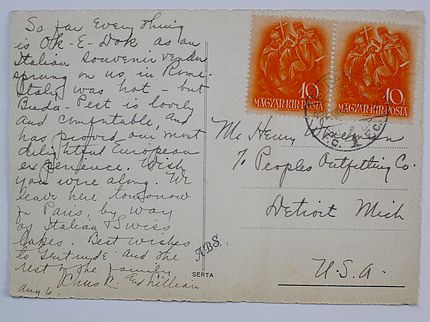 So far Everything
is Ok-E-Dok as an
Italian Souvenir vender
sprung on us in Rome.
Italy was hot but
Buda-Pest is lovely
and comfortable and
has proved our most
delightful European
experience. Wish
you were along. We
leave here tomorrow
for Paris, by way
of Italian & Swiss
Lakes. Best wishes
to Gertrude and the
rest of the family.
and Lillian
Aug 6.
ABS.
SERTA
10
MAGYAR·KIR·POSTA
10
MAGYAR·KIR·POSTA
Mr Henry
% Peoples Outfitting Co.
Detroit Mich
U.S.A.